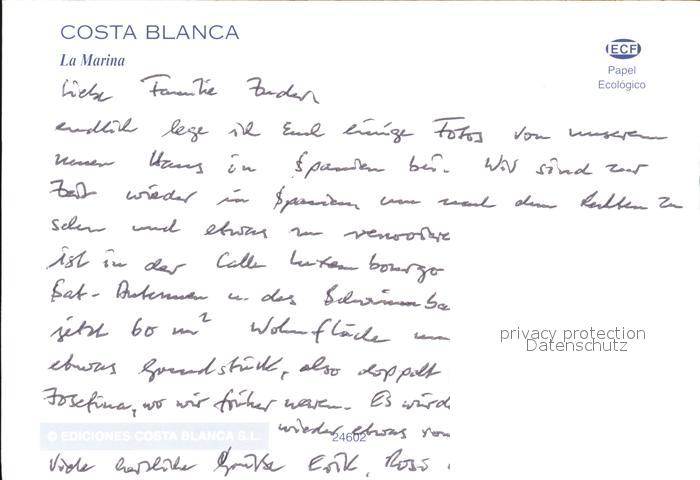 COSTA BLANCA
La Marina
ECF
Papel
Ecológico
Liebe Familie Zander,
endlich lege ich Euch einige Fotos von unserem
neuen Haus in Spanien bei. Wir sind zur
Zeit wieder in Spanien um nach dem Rechten zu
sehen und etwas zu renovie
ist in der Calle Luxembourgo
Sat-Antennen u. das Schwimmba
jetzt 60 m² Wohnfläche
etwas Grundstück, also doppelt
Josefina, wo wir früher waren. Es würd
wieder etwas von
Viele herzliche Grüße Erik, Rosi
privacy protection
Datenschutz
© EDICIONES COSTA BLANCA S.L.
24602